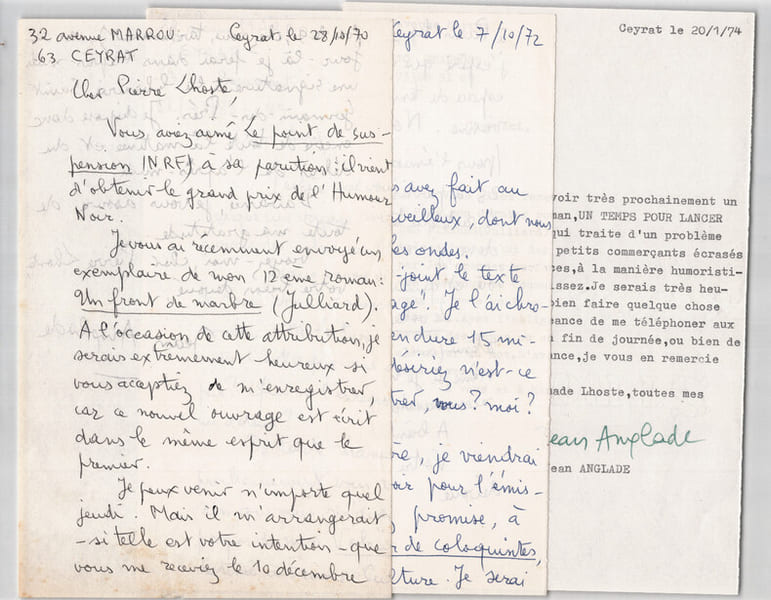 32 avenue MARROU Ceyrat le 28/10/70
63 CEYRAT
Cher Pierre Lhoste,
Vous avez aimé Le point de sus-
pension (NRF) à sa parution : il vient
d'obtenir le grand prix de l'Humour
Noir.
Je vous ai recemment envoyé un
exemplaire de mon 12ème roman :
Un front de marbre (Julliard).
A l'occasion de cette attribution, je
serais extremement heureux si
vous acceptiez de m'enregistrer,
car ce nouvel ouvrage est écrit
dans le même esprit que le
premier.
Je peux venir n'importe quel
jeudi. Mais il m'arrangerait
- si telle est votre intention - que
vous me receviez le 10 décembre
Ceyrat le 7/10/72
s avez fait au
rveilleux, dont nous
les ondes.
joint le texte
age". Je l'ai chro-
endure 15 mi-
désiriez n'est-ce
trer, vous? moi?
re, je viendrai
oir pour l'émis-
promise, à
r de coloquintes,
ulture. Je serai
Ceyrat le 20/1/74
voir très prochainement un
man,UN TEMPS POUR LANCER
qui traite d'un problème
petits commerçants écrasés
ces,à la manière humoristi-
issez.Je serais très heu-
bien faire quelque chose
ance de me téléphoner aux
fin de journée,ou bien de
ance,je vous en remercie
made Lhoste,toutes mes
ean Anglade
ean ANGLADE